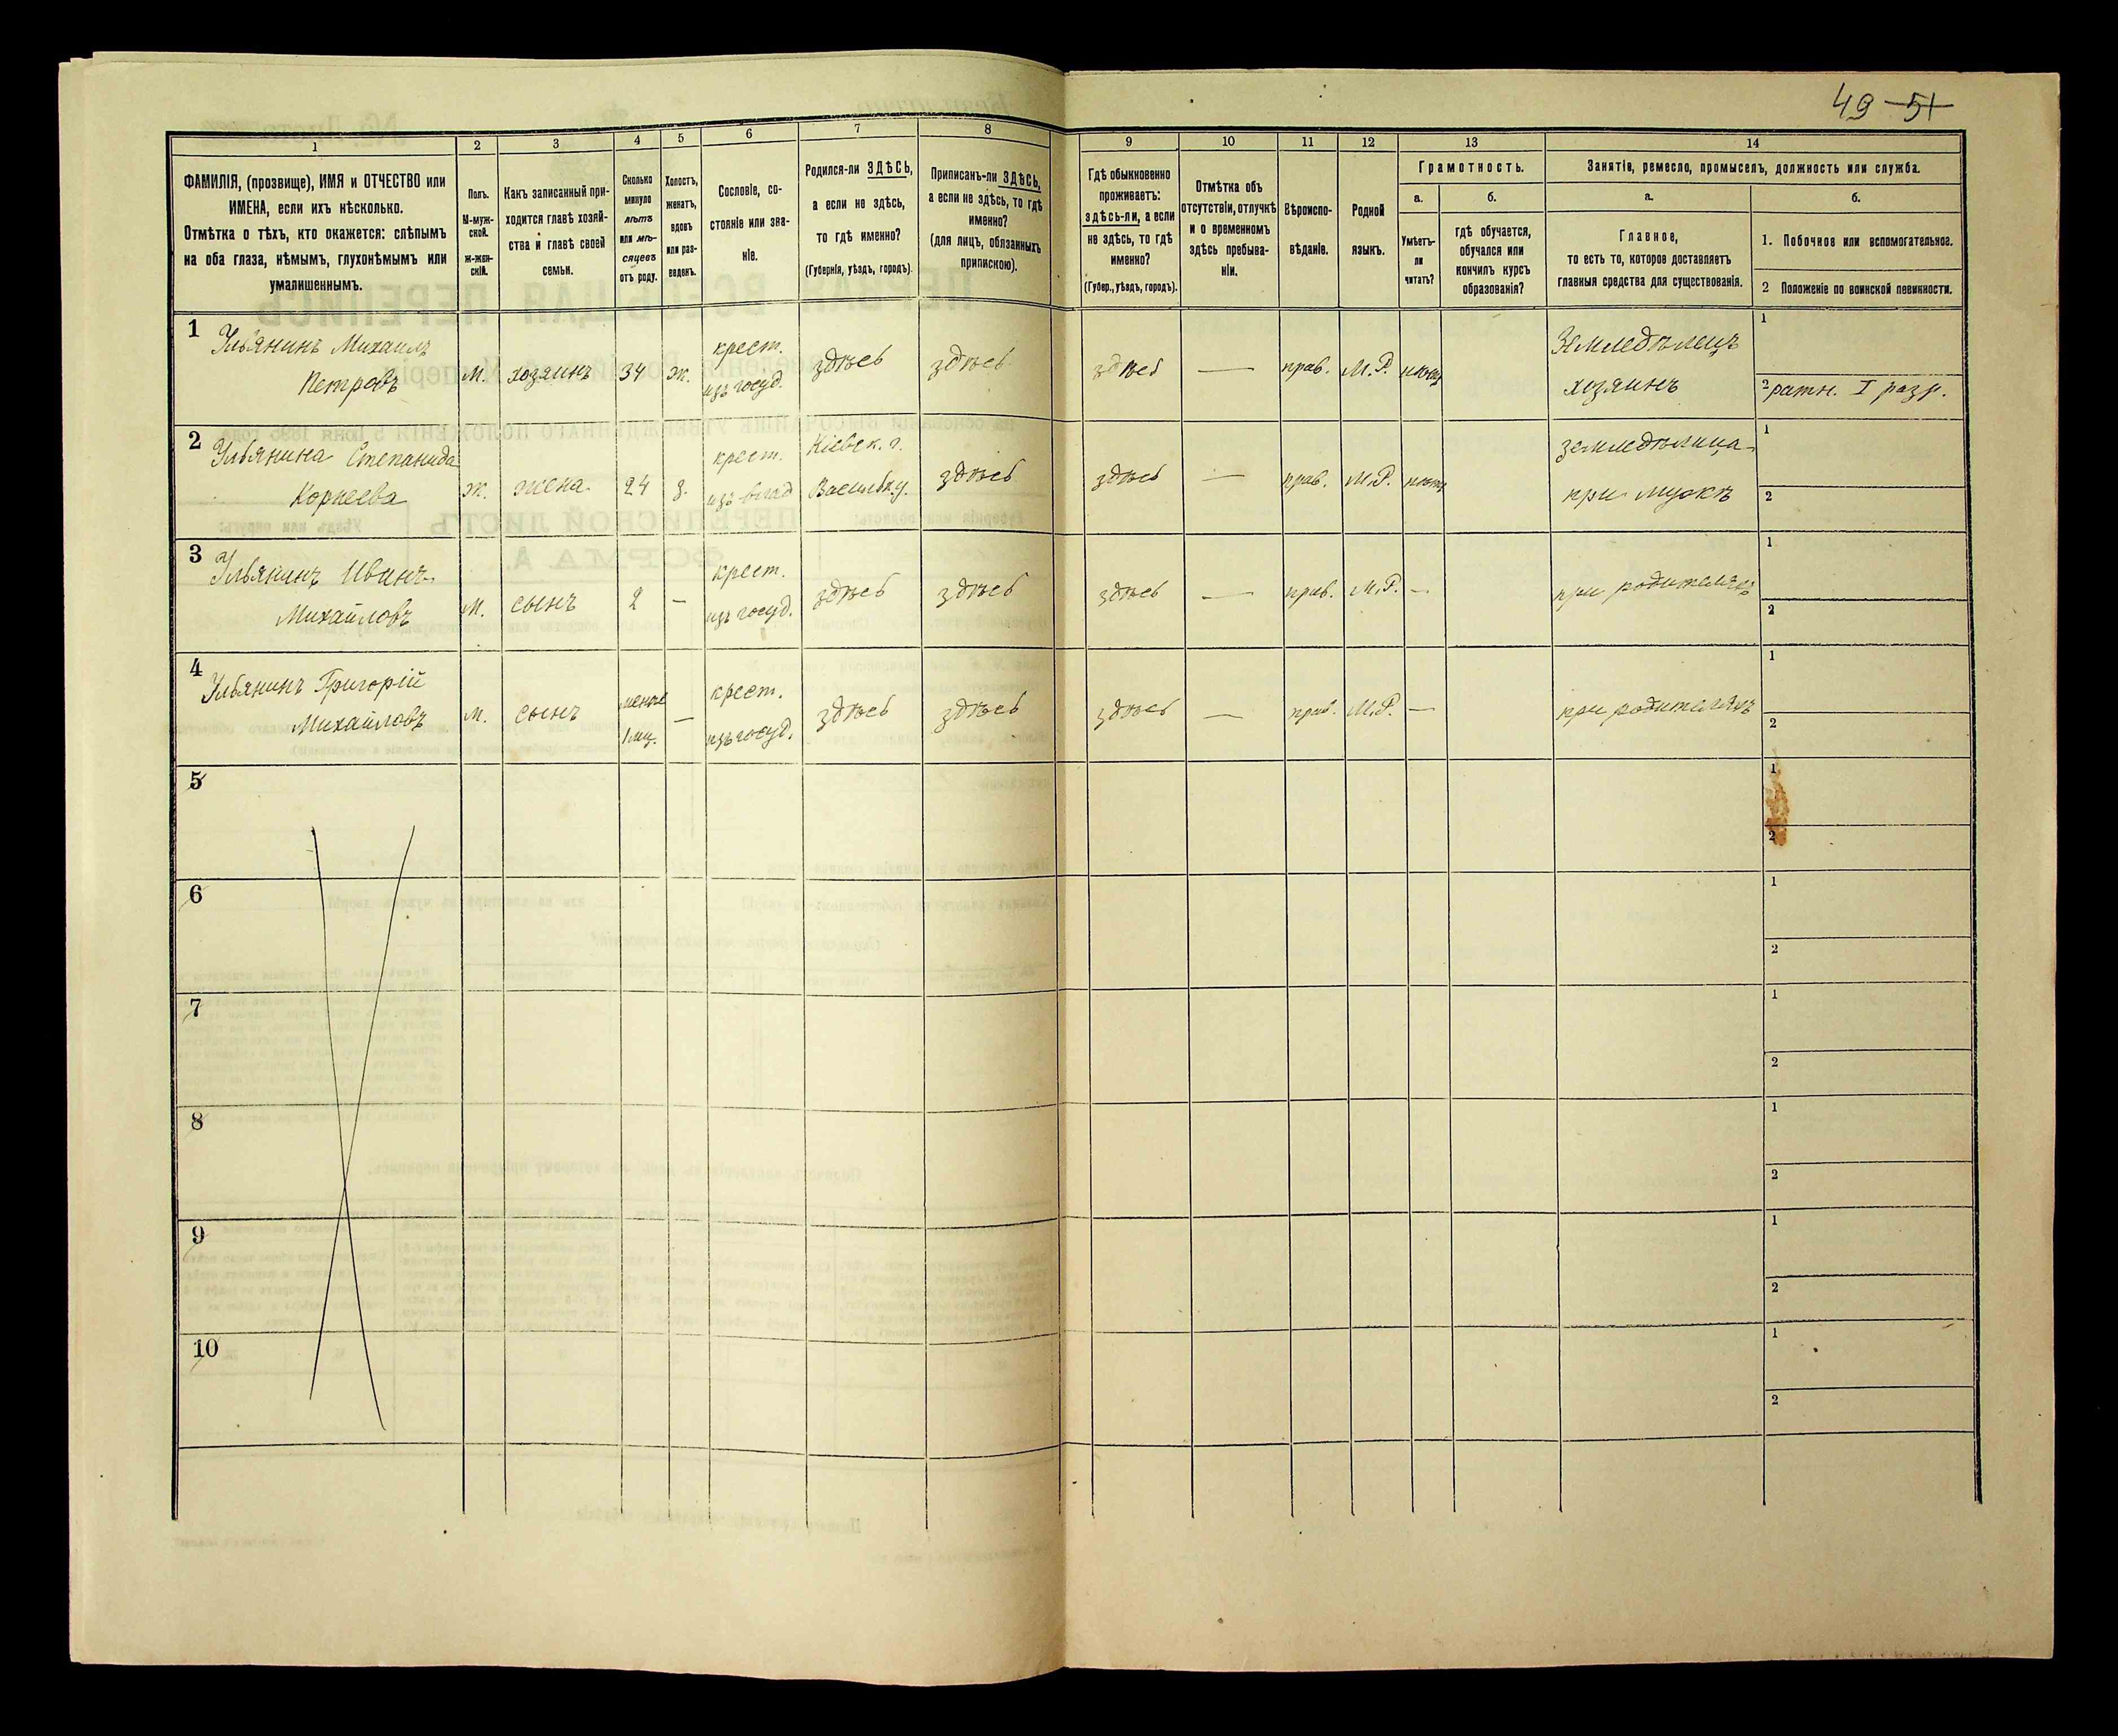 49 51
1 2 3 4 5 6 7 8 9 10 11 12 13 14
ФАМИЛІЯ, (прозвище), ИМЯ и ОТЧЕСТВО или
ИМЕНА, если ихъ нѣсколько.
Отмѣтка о тѣхъ, кто окажется: слѣпымъ
на оба глаза, нѣмымъ, глухонѣмымъ или
умалишеннымъ.
Полъ.
М-муж-
ской.
Ж-жен-
скій.
Какъ записанный при-
ходится главѣ хозяй-
ства и главѣ своей
семьи.
Сколько
минуло
лѣтъ
или мѣ-
сяцевъ
отъ роду.
Холостъ,
женатъ,
вдовъ
или раз-
веденъ.
Сословіе, со-
стояніе или зва-
ніе.
Родился-ли ЗДѢСЬ,
а если не здѣсь,
то гдѣ именно?
(Губернія, уѣздъ, городъ).
Приписанъ-ли ЗДѢСЬ,
а если не здѣсь, то гдѣ
именно?
(для лицъ, обязанныхъ
припискою).
Гдѣ обыкновенно
проживаетъ:
здѣсь-ли, а если
не здѣсь, то гдѣ
именно?
(Губер., уѣздъ, городъ).
Отмѣтка объ
отсутствіи, отлучкѣ
и о временномъ
здѣсь пребыва-
ніи.
Вѣроиспо-
вѣданіе.
Родной
языкъ.
Грамотность.
а.
Умѣетъ-
ли
читать?
б.
гдѣ обучается,
обучался или
кончилъ курсъ
образованія?
Занятіе, ремесло, промыселъ, должность или служба.
а.
Главное,
то есть то, которое доставляетъ
главныя средства для существованія.
б.
1. Побочное или вспомогательное.
2 Положеніе по воинской повинности.
1 Ульянинъ Михаилъ
Петровъ
М. хозяинъ 34 ж.
крест.
изъ госуд.
здѣсь здѣсь здѣсь — прав. М.Р. нѣтъ
Земледѣлецъ
хозяинъ
1
2 ратн. I разр.
2 Ульянина Степанида
Корнеева
ж. жена 24 з.
крест.
изъ влад
Кіевск. г.
Васильк.у.
здѣсь здѣсь — прав. М.Р. нѣтъ
земледѣлица
при мужѣ
1
2
3 Ульянинъ Иванъ
Михайловъ
М. сынъ 2 —
крест.
изъ госуд.
здѣсь здѣсь здѣсь — прав. М.Р. —
при родителяхъ
1
2
4 Ульянинъ Григорій
Михайловъ
М. сынъ
менѣе
1 мц.
—
крест.
изъ госуд.
здѣсь здѣсь здѣсь — прав. М.Р. —
при родителяхъ
1
2
5
1
2
6
1
2
7
1
2
8
1
2
9
1
2
10
1
2